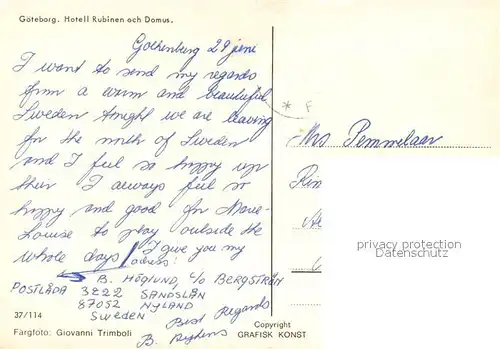 Göteborg. Hotell Rubinen och Domus.
Gothenburg 28 juni
I want to send my regards
from a warm and beautiful
Sweden tonight we are leaving
for the north of Sweden
and I feel so happy up
their I always feel so
happy and good for Marie-
Louise to play outside the
whole days / I give you my
adress:
B. HÖGLUND, c/o BERGSTRÖM
POSTLÅDA 3222 SANDSLÅN
87052 NYLAND
SWEDEN
Best Regards
B.
37/114
Färgfoto: Giovanni Trimboli
Copyright
GRAFISK KONST
Mrs Pemmelaar
privacy protection
Datenschutz